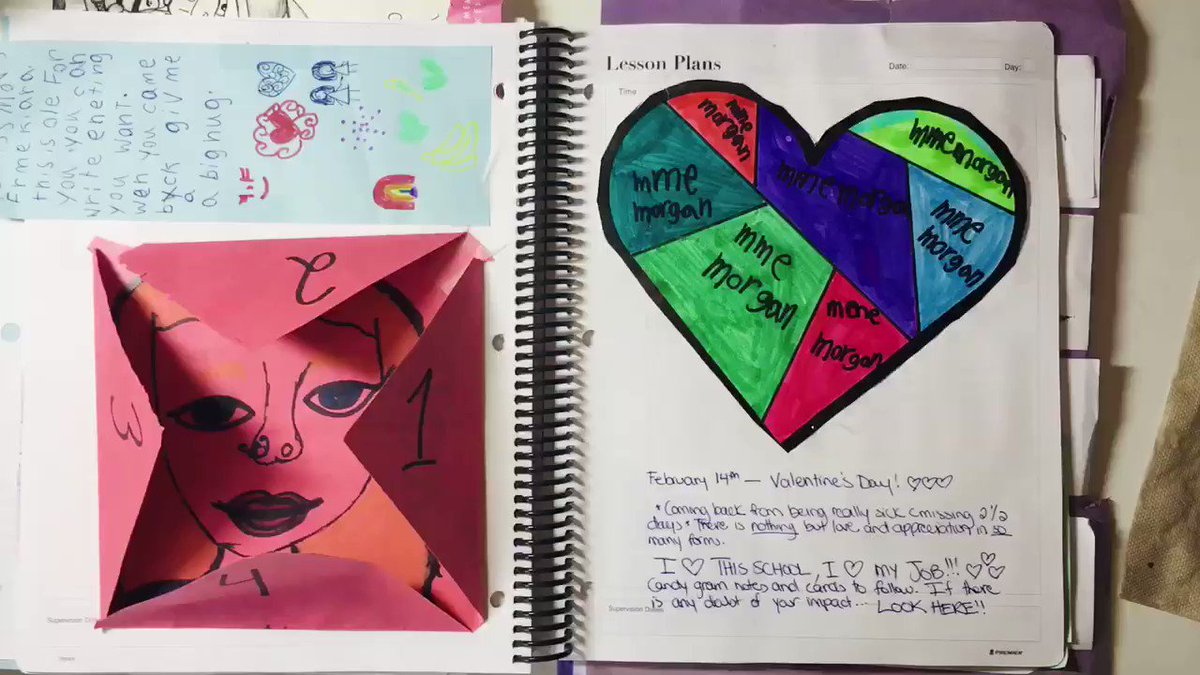 Frmekiara.
this is ole For
you you can
write eneting
you want.
wen you came
byck giv me
a
a bighug.
2
3
1
4
Lesson Plans
Date:
Day:
Time
mme
morgan
mme morgan
mme morgan
mme
morgan
mme
morgan
mme
morgan
mme
morgan
Febuary 14th — Valentine's Day! ♡♡♡
*Coming back from being really sick & missing 2 1/2
days* There is nothing but love and appreciation in so
many forms.
I ♡ THIS SCHOOL, I ♡ MY JOB!!! ♡♡♡
Candy gram notes and cards to follow. If there
is any doubt of your impact... LOOK HERE!!
Supervision Duties
PREMIER